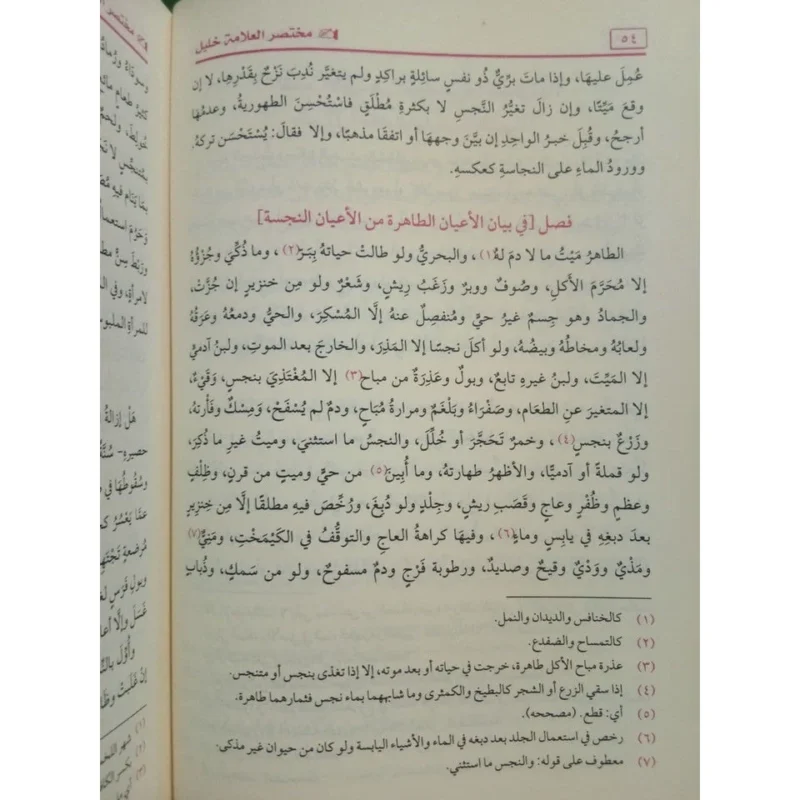 ٥٤
مختصر العلامة خليل
عُمِلَ عليهَا، وإذا ماتَ برِّيٌّ ذُو نفسٍ سائِلةٍ براكِدٍ ولم يتغيَّر نُدِبَ نَزْحٌ بِقَدْرِهِا، لا إن
وقعَ مَيِّتًا، وإن زالَ تغيُّرُ النَّجسِ لا بكثرةِ مُطْلَقٍ فاسْتُحْسِنَ الطهوريةُ، وعدمُهَا
أرجحُ، وقُبِلَ خبرُ الواحِدِ إن بيَّنَ وجههَا أو اتفقَا مذهبًا، وإلا فقالَ: يُسْتَحْسَن تركهُ.
وورودُ الماءِ على النجاسةِ كعكسهِ.
فصل [في بيان الأعيان الطاهرة من الأعيان النجسة]
الطاهرُ مَيْتُ ما لا دمَ لهُ(١)، والبحريُّ ولو طالتْ حياتهُ بِبَرّ(٢)، وما ذُكِّيَ وجُزْؤُهُ
إلا مُحَرَّمَ الأَكلِ، وصُوفٌ ووبرٌ وزَغَبُ رِيشٍ، وشَعْرٌ ولو مِن خنزيرٍ إن جُزَّتْ،
والجمادُ وهو جِسمٌ غيرُ حيٍّ ومُنفصِلٌ عنهُ إلَّا المُسْكِرَ، والحيُّ ودمعُهُ وعَرَقُهُ
ولعابُهُ ومخاطُهُ وبيضُهُ، ولو أكلَ نجسًا إلا المَذِرَ، والخارجَ بعد الموتِ، ولبنُ آدميٍّ
إلا المَيِّتَ، ولبنُ غيرِهِ تابعٌ، وبولٌ وعَذِرَةٌ من مباحٍ(٣) إلا المُغْتَذِيَ بنجسٍ، وقَيْءٌ،
إلا المتغيرَ عنِ الطعَامِ، وصَفْرَاءُ وبَلْغَمٌ ومرارةُ مُبَاحٍ، ودمٌ لم يُسْفَحْ، ومِسْكٌ وفَأْرتهُ،
وزَرْعٌ بنجسٍ(٤)، وخمرٌ تَحَجَّرَ أو خُلِّلَ، والنجسُ ما استثنيَ، وميتُ غيرِ ما ذُكِرَ،
ولو قملةً أو آدميًّا، والأظهرُ طهارتهُ، وما أُبِينَ(٥) من حيٍّ وميتٍ من قرنٍ، وظِلْفٍ
وعظمٍ وظُفْرٍ وعاجٍ وقَصَبِ ريشٍ، وجِلْدٍ ولو دُبِغَ، ورُخِّصَ فيهِ مطلقًا إلَّا مِن خِنزِيرٍ
بعدَ دبغِهِ في يابِسٍ وماءٍ(٦)، وفيهَا كراهةُ العاجِ والتوقُّفُ في الكَيْمَخْتِ، ومَنِيٌّ(٧)
ومَذْيٌ ووَدْيٌ وقيحٌ وصديدٌ، ورطوبة فَرْجٍ ودمٌ مسفوحٌ، ولو من سَمكٍ، وذُبابٍ
(١) كالخنافس والديدان والنمل.
(٢) كالتمساح والضفدع.
(٣) عذرة مباح الأكل طاهرة، خرجت في حياته أو بعد موته، إلا إذا تغذى بنجس أو متنجس.
(٤) إذا سقي الزرع أو الشجر كالبطيخ والكمثرى وما شابههما بماء نجس فثمارهما طاهرة.
(٥) أي: قطع. (مصححه).
(٦) رخص في استعمال الجلد بعد دبغه في الماء والأشياء اليابسة ولو كان من حيوان غير مذكى.
(٧) معطوف على قوله: والنجس ما استثني.